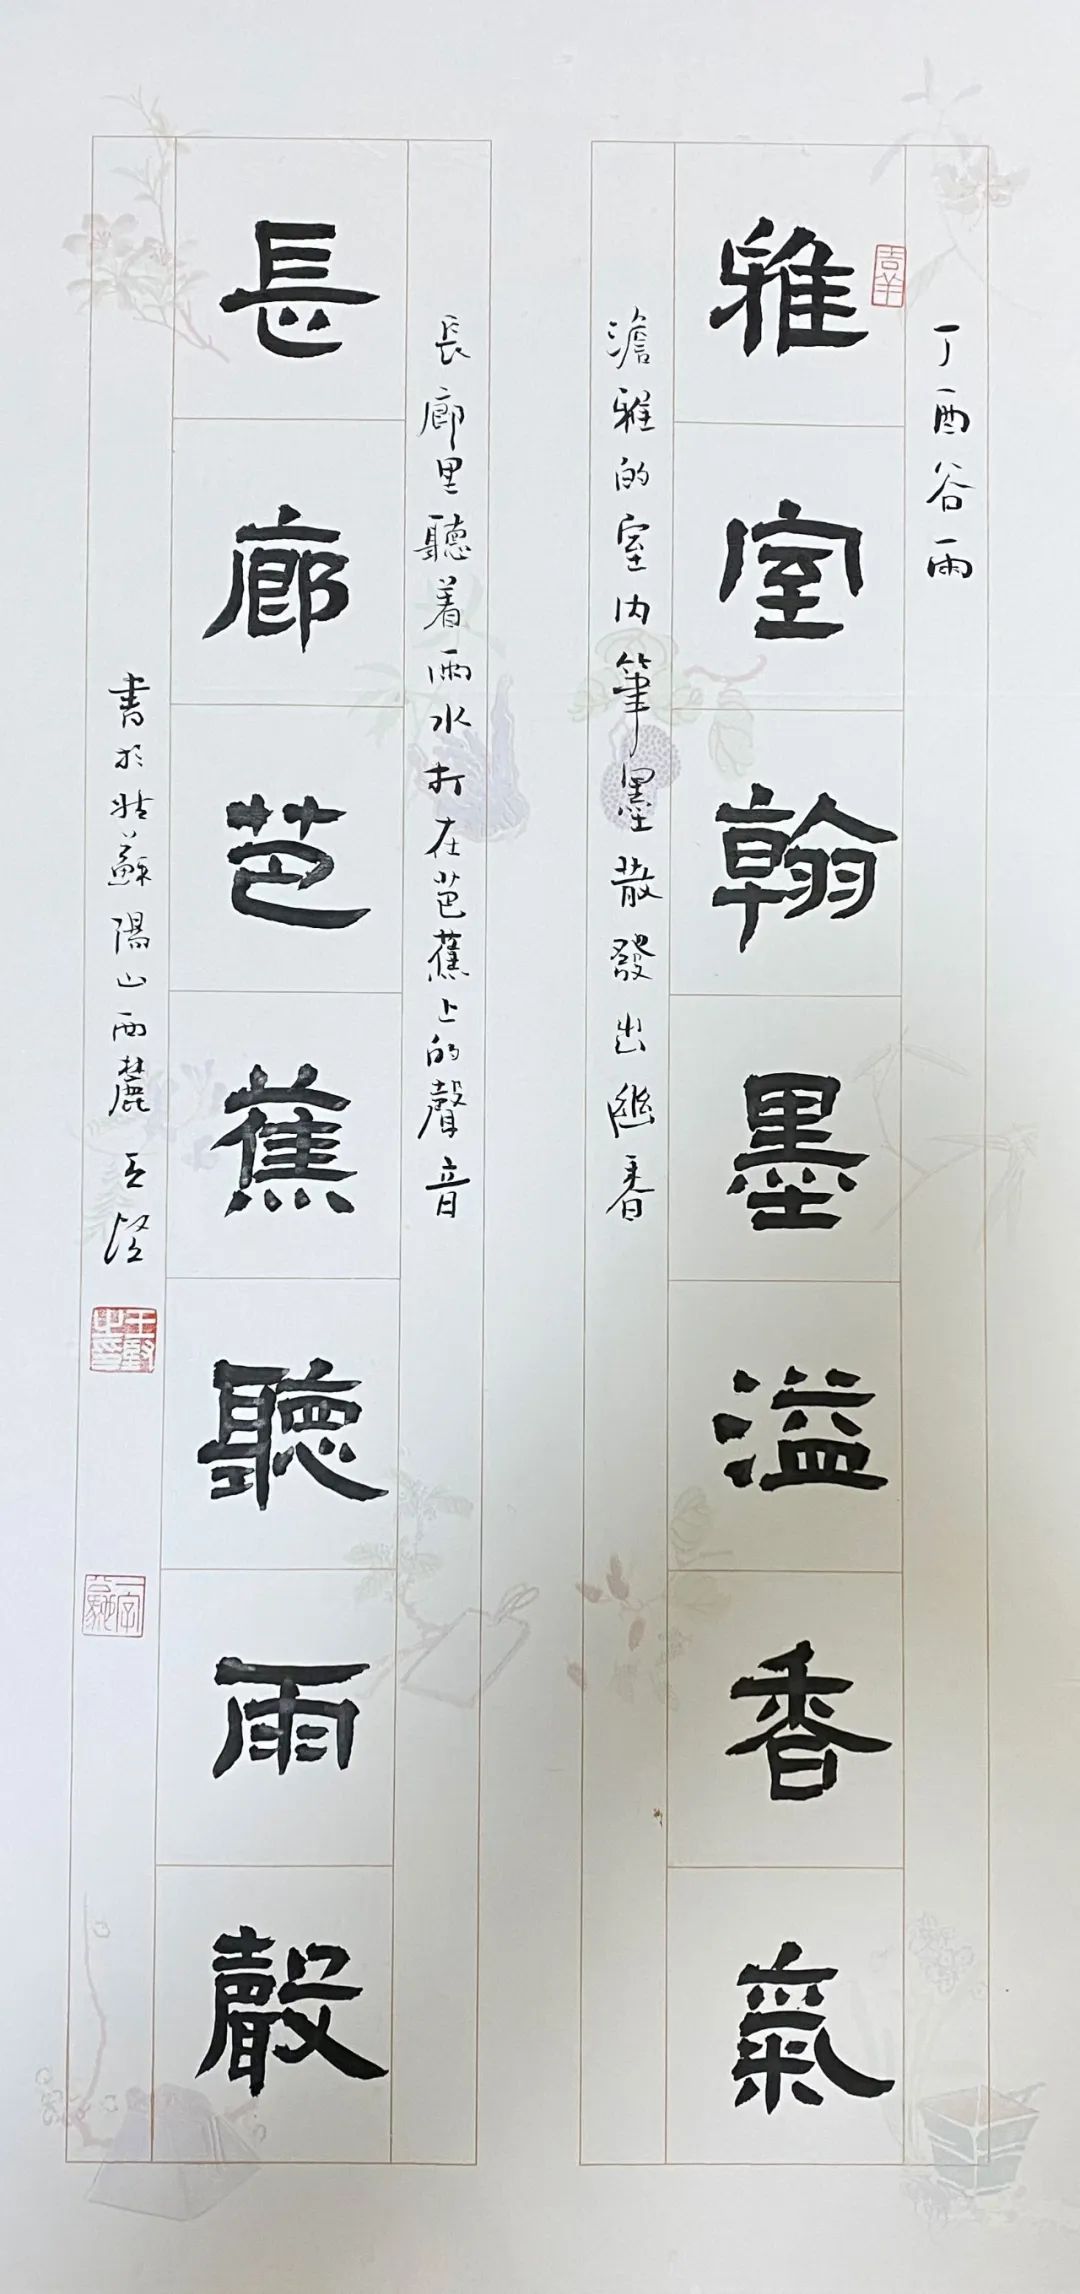 丁酉谷雨
吉羊
雅室翰墨溢香氣
澹雅的室内筆墨散發出幽香
長廊里聽着雨水打在芭蕉上的聲音
長廊芭蕉聽雨聲
書於姑蘇陽山西麓
王
王
之印